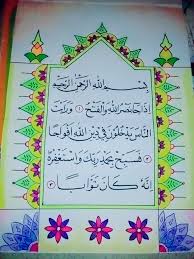 بسم الله الرحمن الرحيم
إذا جاء نصر الله والفتح ١ ورأيت
الناس يدخلون في دين الله أفواجا
٢ فسبح بحمد ربك واستغفره
إنه كان توابا ٣